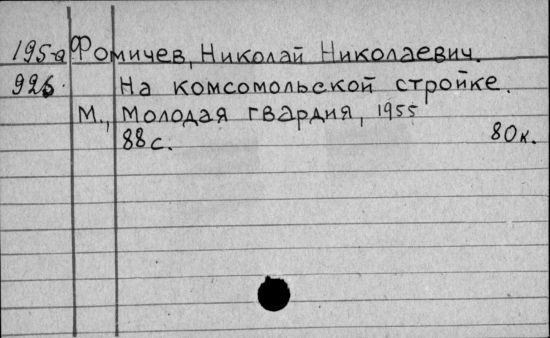 195-а Фомичев, Николай Николаевич.
926. На комсомольской стройке.
М., Молодая гвардия, 1955
88 с. 80 к.